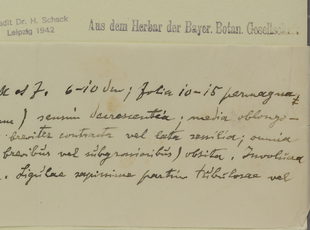 edit Dr. H. Schack
Leipzig 1942
Aus dem Herbar der Bayer. Botan. Gesellscha
6-10 ; folia 10-15 permagna,
) sensim decrescentia; media oblongo-
breviter contracta vel lata sessilia; omnia
brevibus vel subgrossioribus) obsita. Involucra
. Ligulae saepissime partim tubulosae vel